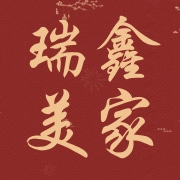 瑞鑫
美家